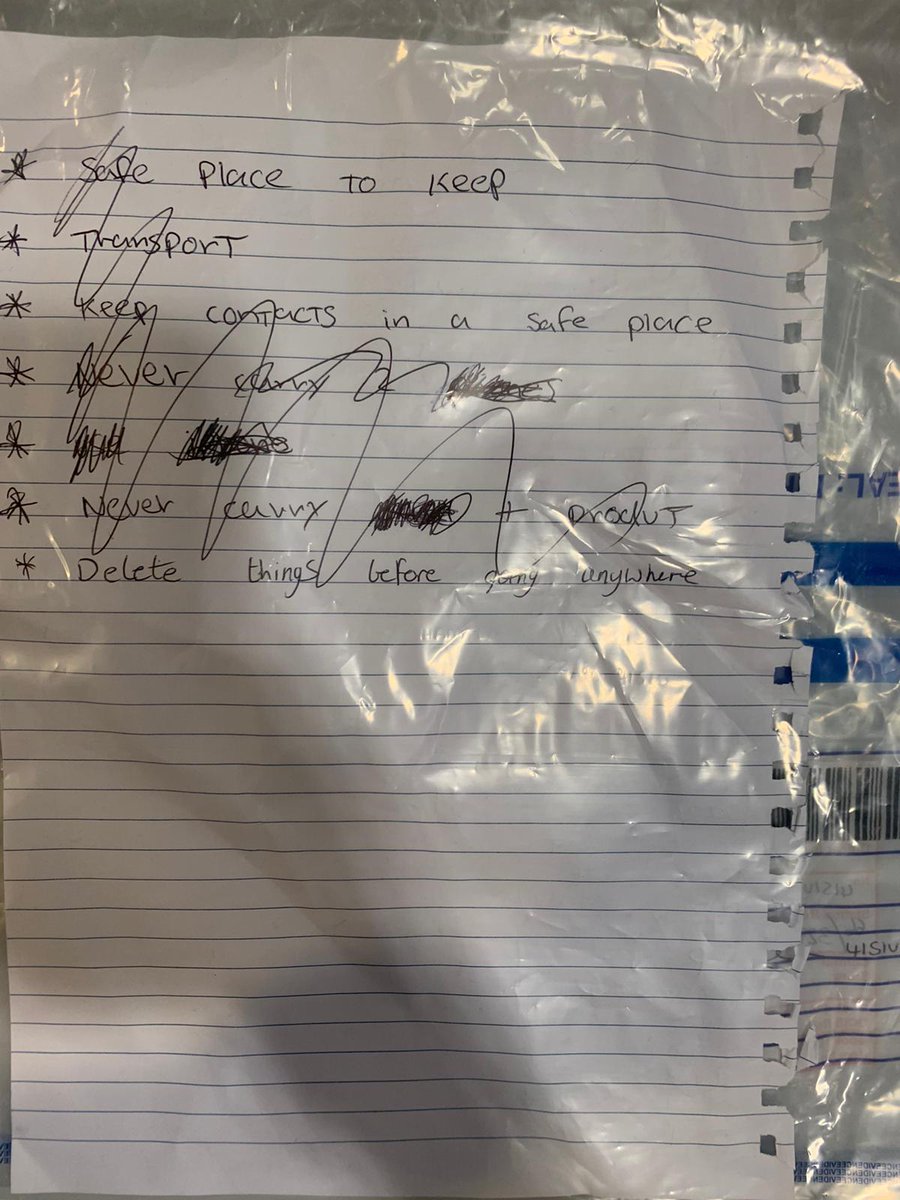 * Safe Place To Keep
* Transport
* Keep contacts in a safe place
* Never carry
*
* Never carry + produt
* Delete things before going anywhere
EAL:
41SIV